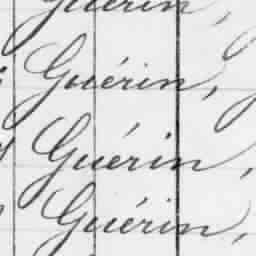 Guérin,
Guérin,
Guérin,
Guérin,